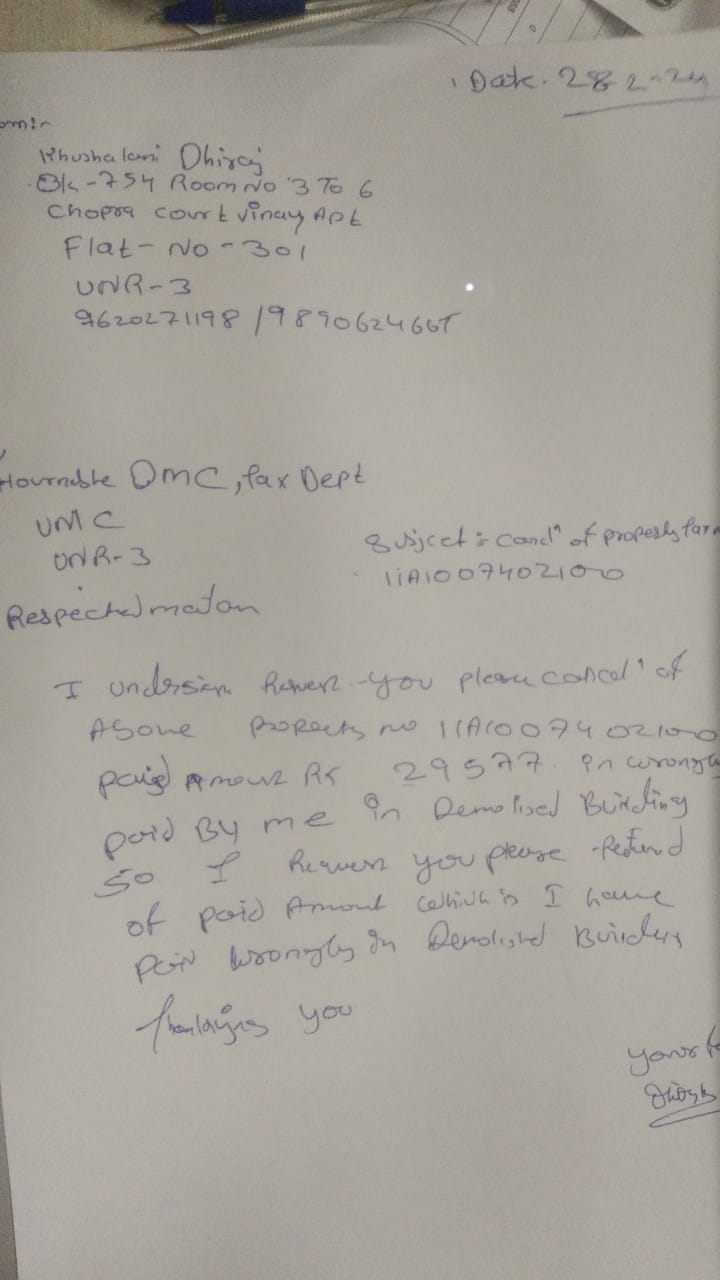 Date. 28 2-24
Khushalani Dhiraj
Bk-754 Room No 3 To 6
Chopra court vinay Apt
Flat-No-301
UNR-3
9620271198 / 989062466
Hournable DMC, tax Dept
UMC
UNR-3
Subject: Canclⁿ of property tax
11A1007402100
Respected madam
I undersign you please cancelⁿ of
Above Property no 11A1007402100
paid Amount Rs 29577. in wrongly
paid By me in Demolised Building
So I you please Refund
of paid Amount which is I have
paid wrongly in Demolished Building
Thankying you
yours